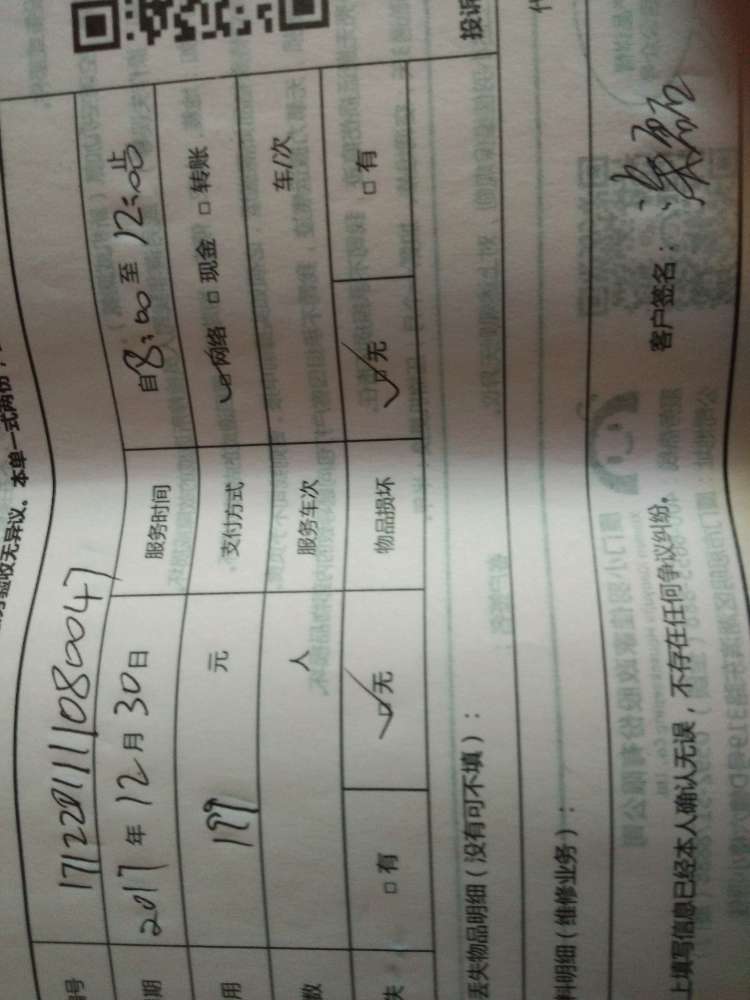 务验收无异议。本单一式两份，
号 1712201111080047
期 2017 年 12 月 30 日 服务时间 自 8:00 至 12:00 止
用 199 元 支付方式 ☑网络 □现金 □转账
数 人 服务车次 车/次
失 □有 ☑无 物品损坏 ☑无 □有
丢失物品明细（没有可不填）： 投诉
料明细（维修业务）： 代
上填写信息已经本人确认无误，不存在任何争议纠纷。 客户签名：